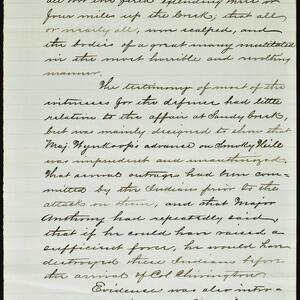 four miles up the Creek; that all
or nearly all, were scalped, and
the bodies of a great many mutilated
in the most horrible and revolting
manner.
The testimony of most of the
witnesses for the defense had little
relation to the affair at Sandy Creek,
but was mainly designed to show that
Maj. Wynkoop's advance on Smoky Hill
was imprudent and unauthorized.
That several outrages had been com-
mitted by the Indians prior to the
attack on them, and that Major
Anthony had repeatedly said
that if he could have raised a
sufficient force, he would have
destroyed these Indians before
the arrival of Col Chivington.
Evidence was also intro-